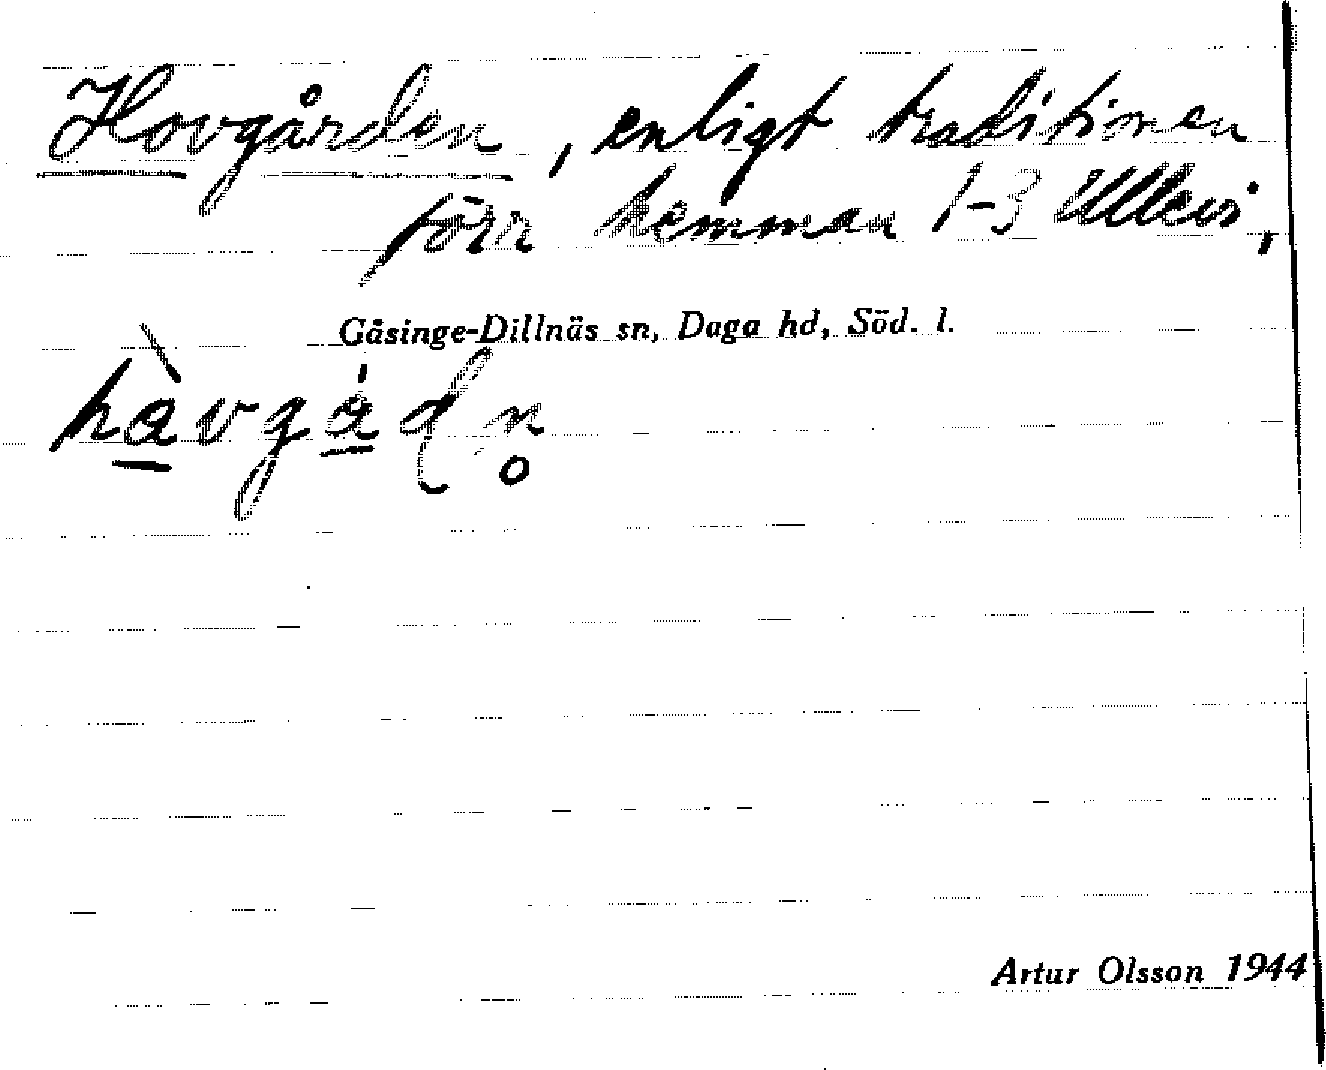 Hovgården, enligt traditionen
förr hemman 1-3 Ullevi,
Gåsinge-Dillnäs sn, Daga hd, Söd. l.
hàvgáɖn̥
Artur Olsson 1944